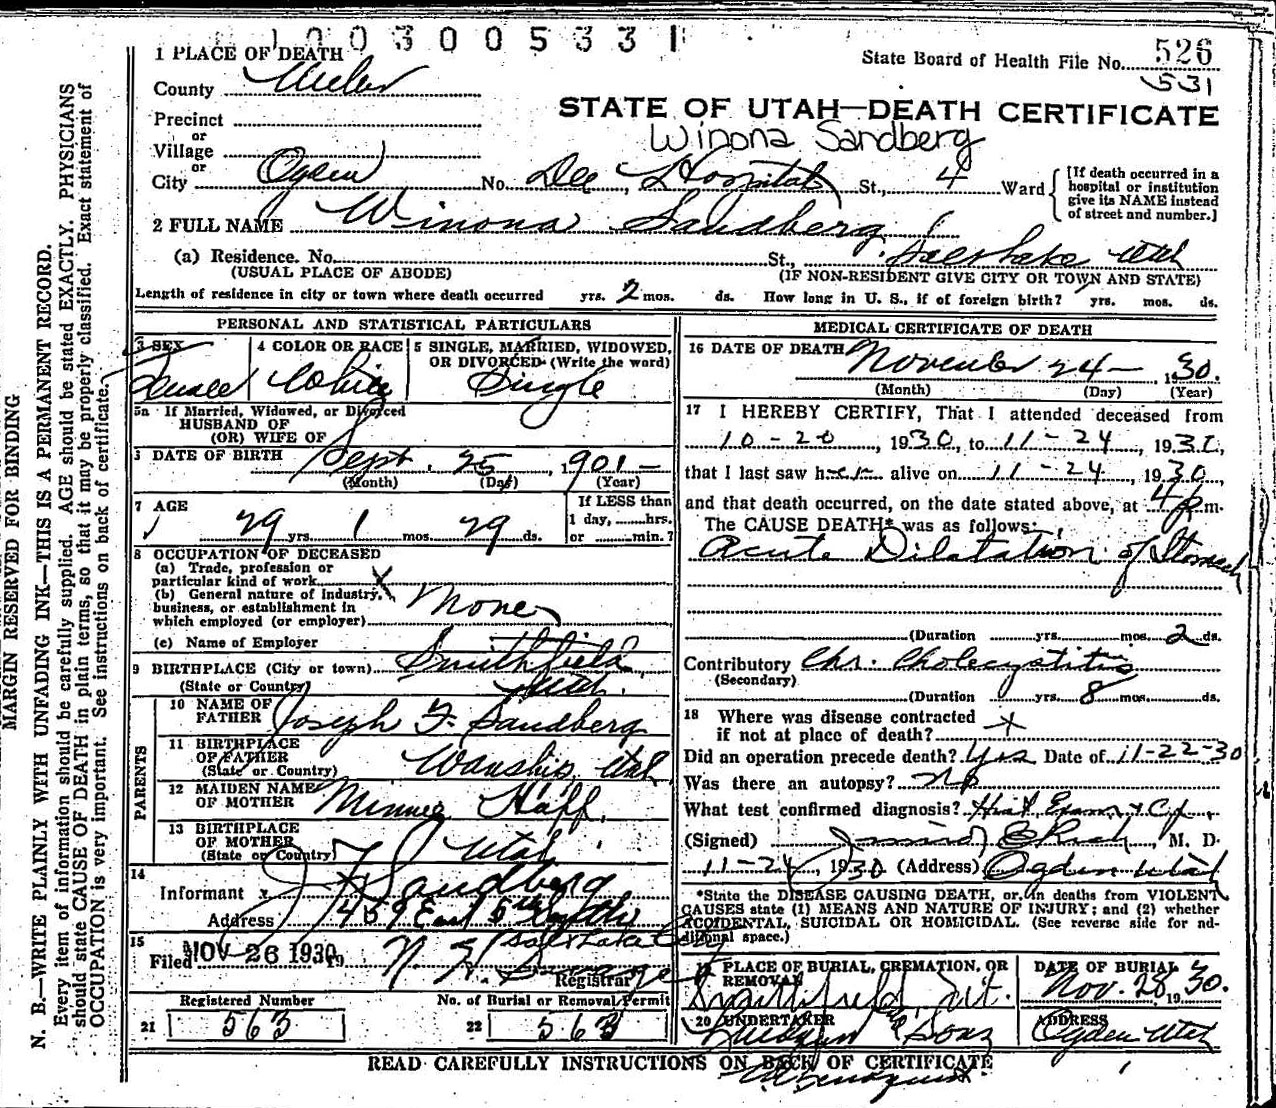 1003005331
1 PLACE OF DEATH
State Board of Health File No. 526
531
County Weber
STATE OF UTAH—DEATH CERTIFICATE
Precinct
Winona Sandberg
or
Village
or
City Ogden No. Dee Hospital St., 4 Ward
[If death occurred in a
hospital or institution
give its NAME instead
of street and number.]
2 FULL NAME Winona Sandberg
(a) Residence. No. St., Salt Lake Utah
(USUAL PLACE OF ABODE) (IF NON-RESIDENT GIVE CITY OR TOWN AND STATE)
Length of residence in city or town where death occurred yrs. 2 mos. ds. How long in U. S., if of foreign birth? yrs. mos. ds.
PERSONAL AND STATISTICAL PARTICULARS
3 SEX 4 COLOR OR RACE 5 SINGLE, MARRIED, WIDOWED,
OR DIVORCED (Write the word)
Female White Single
5a If Married, Widowed, or Divorced
HUSBAND OF
(OR) WIFE OF
DATE OF BIRTH Sept. 25, 1901
(Month) (Day) (Year)
7 AGE If LESS than
29 yrs. 1 mos. 29 ds. 1 day, hrs.
or min.?
8 OCCUPATION OF DECEASED
(a) Trade, profession or
particular kind of work x
(b) General nature of industry,
business, or establishment in
which employed (or employer) None
(c) Name of Employer
9 BIRTHPLACE (City or town) Smithfield
(State or Country) Utah.
PARENTS
10 NAME OF
FATHER Joseph F. Sandberg
11 BIRTHPLACE
OF FATHER
(State or Country) Wanship, Utah
12 MAIDEN NAME
OF MOTHER Minnie
13 BIRTHPLACE
OF MOTHER
(State or Country) Utah
14
Informant x Sandberg
Address 459 East 5th South
Salt Lake City
15
Filed NOV 26 1930 19
Registrar
Registered Number No. of Burial or Removal Permit
21 563 22 563
MEDICAL CERTIFICATE OF DEATH
16 DATE OF DEATH November 24 — 1930.
(Month) (Day) (Year)
17 I HEREBY CERTIFY, That I attended deceased from
10-20, 1930, to 11-24, 193
that I last saw her alive on 11-24, 1930,
and that death occurred, on the date stated above, at 4 p.m.
The CAUSE DEATH* was as follows:
Acute Dilatation of Stomach
(Duration yrs. mos. 2 ds.
Contributory Chr. Cholecystitis
(Secondary)
(Duration yrs. 8 mos. ds.
18 Where was disease contracted
if not at place of death? x
Did an operation precede death? Yes Date of 11-22-30
Was there an autopsy? no
What test confirmed diagnosis? Hist. Exam.
(Signed) M. D.
11-24, 1930 (Address) Ogden Utah
*State the DISEASE CAUSING DEATH, or, in deaths from VIOLENT
CAUSES state (1) MEANS AND NATURE OF INJURY; and (2) whether
ACCIDENTAL, SUICIDAL OR HOMICIDAL. (See reverse side for ad-
ditional space.)
19 PLACE OF BURIAL, CREMATION, OR
REMOVAL
Smithfield, Ut.
DATE OF BURIAL
Nov. 28, 1930.
20 UNDERTAKER
& Sons
ADDRESS
Ogden Utah
READ CAREFULLY INSTRUCTIONS ON BACK OF CERTIFICATE
MARGIN RESERVED FOR BINDING
N. B.—WRITE PLAINLY WITH UNFADING INK—THIS IS A PERMANENT RECORD.
Every item of information should be carefully supplied. AGE should be stated EXACTLY. PHYSICIANS
should state CAUSE OF DEATH in plain terms, so that it may be properly classified. Exact statement of
OCCUPATION is very important. See instructions on back of certificate.